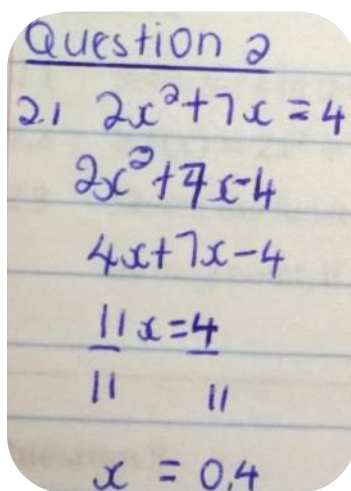 Question 2
2.1 2x²+7x=4
2x²+7x-4
4x+7x-4
11x=4
11 11
x = 0,4